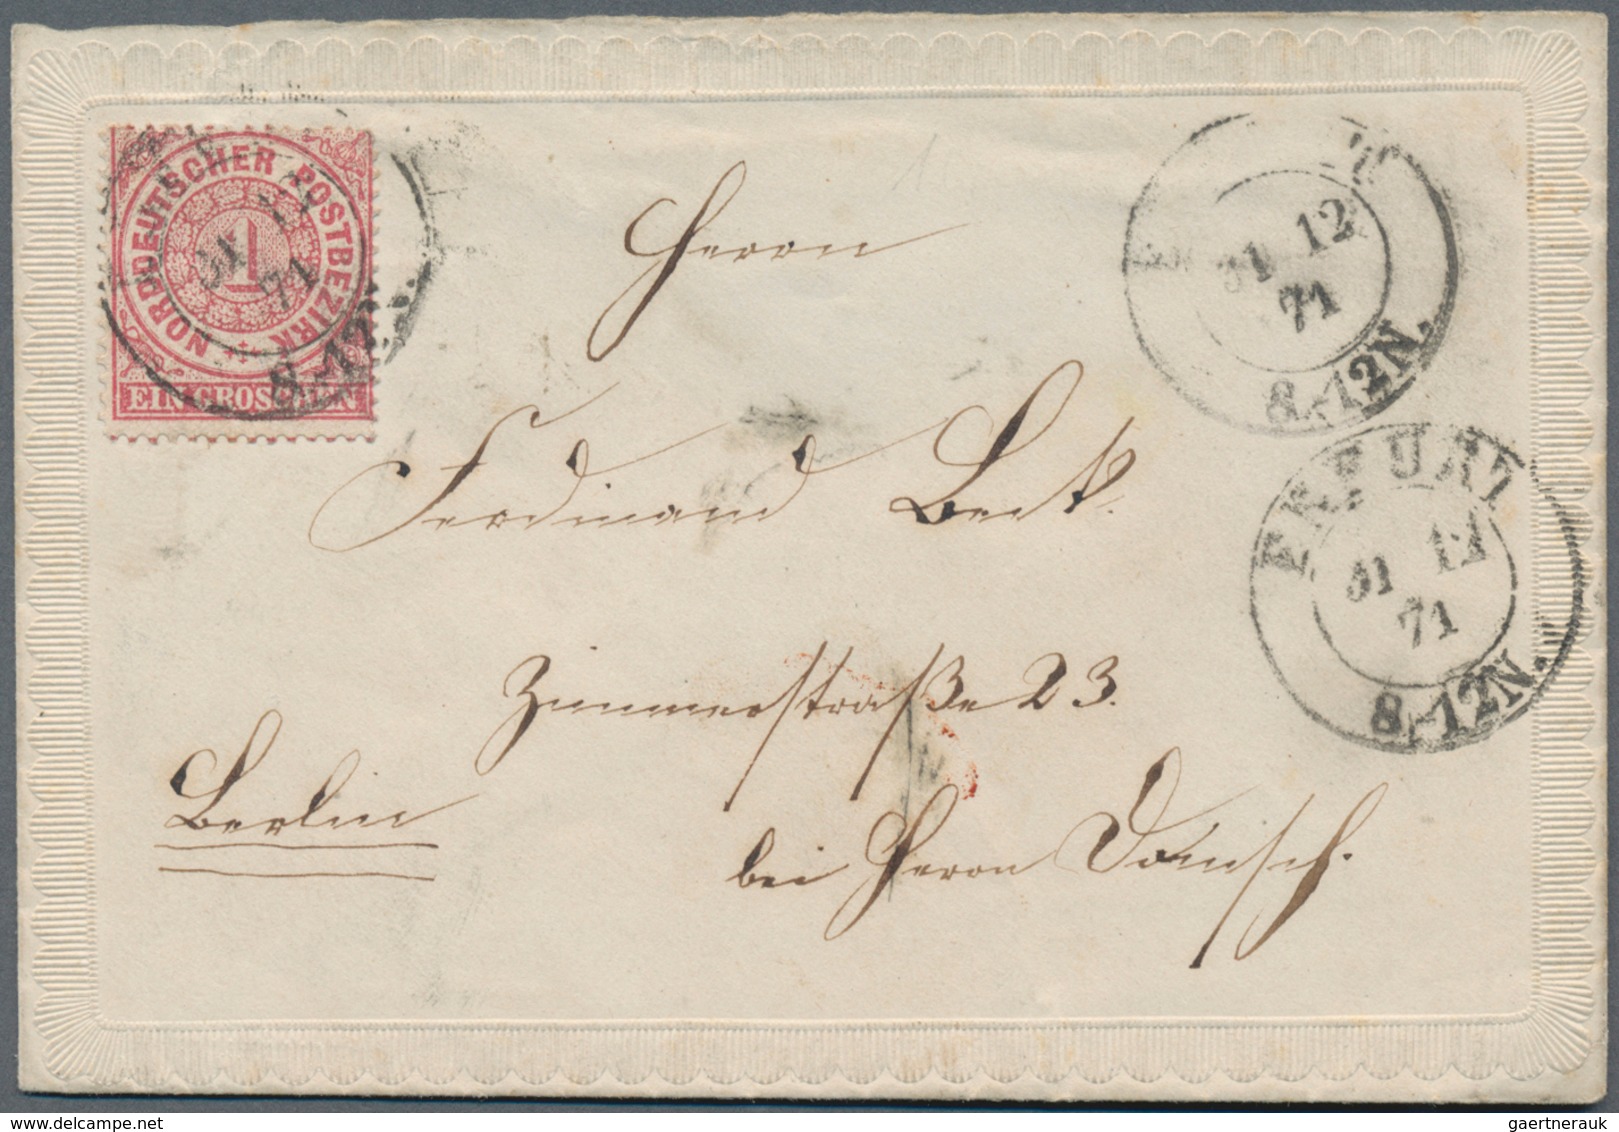 NORDDEUTSCHER POSTBEZIRK
1
EIN GROSCHEN
31 12
71
8-12
31 12
71
8-12N.
ERFURT
31 12
71
8-12N.
Herrn
Ferdinand Beck.
Zimmerstraße 23.
Berlin
bei Herrn
gaertnerauk